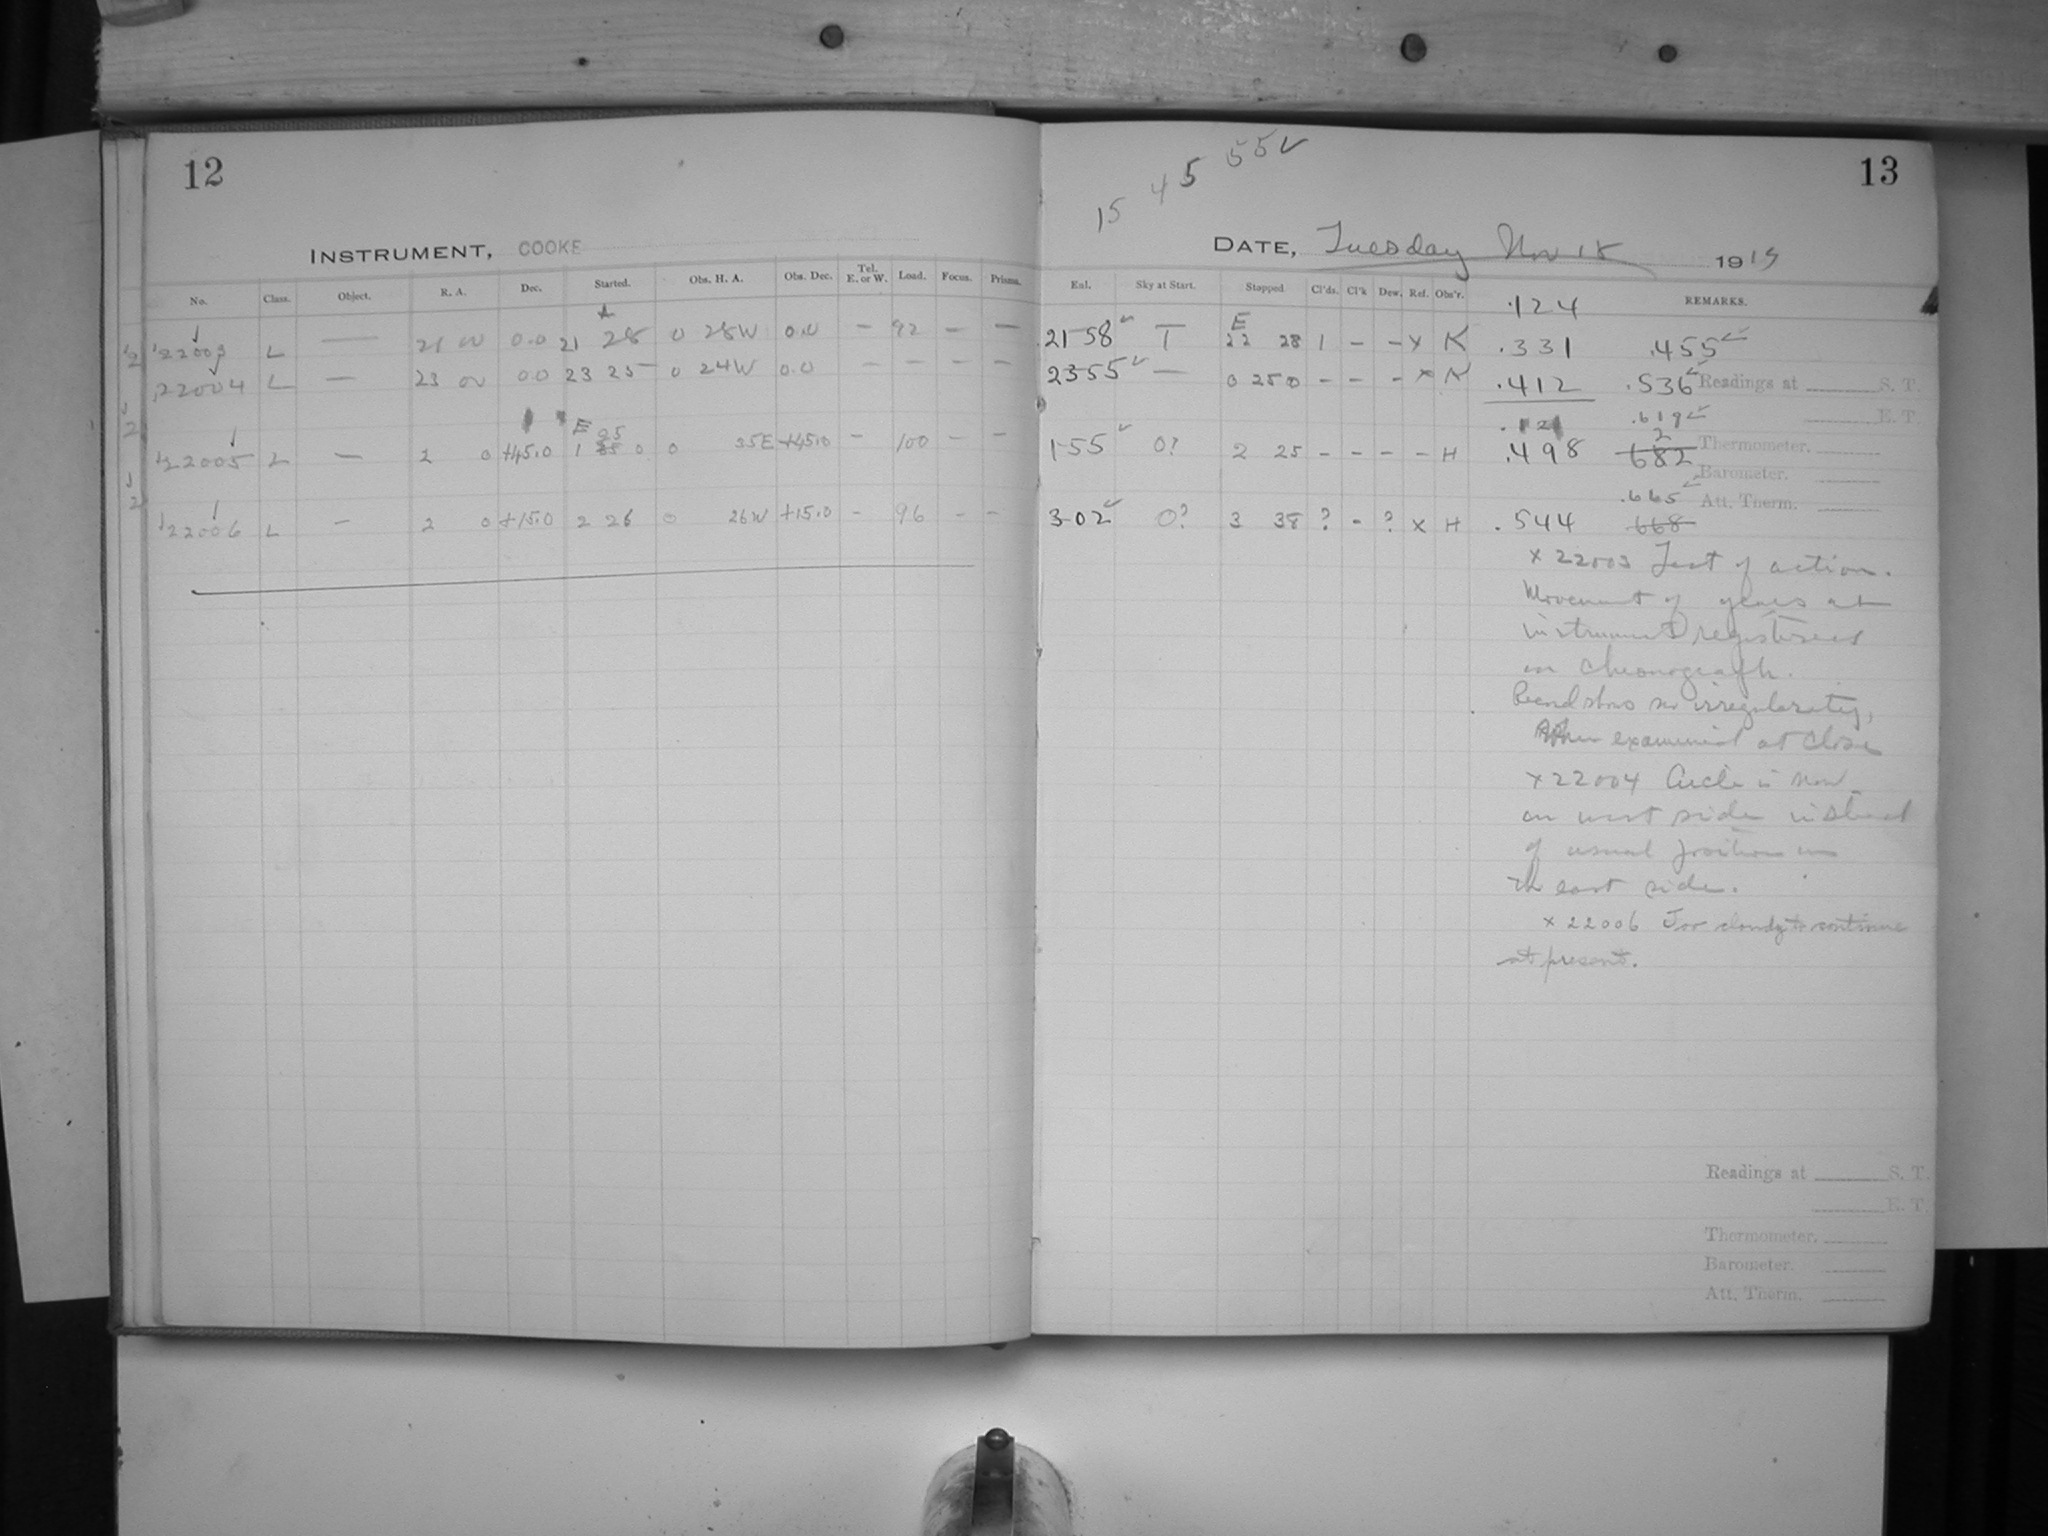 12
INSTRUMENT, COOKE
No. Class. Object. R. A. Dec. Started. Obs. H. A. Obs. Dec. Tel. E. or W. Load. Focus. Prisms.
22003 L — 21 00 0.0 21 28 0 28W 0.0 — 92 — —
22004 L — 23 00 0.0 23 25 0 24W 0.0 — — — —
E 25
22005 L — 2 0 +45.0 1 0 0 35E +45.0 — 100 — —
22006 L — 2 0 +15.0 2 26 0 26W +15.0 — 96 — —
15 45 55
13
DATE, Tuesday Nov 18 1919
Exl. Sky at Start. Stopped Cl'ds. Cl'k Dew. Ref. Obs'r. REMARKS.
.124
E
21 58 T 22 28 1 — — x K .331 .455
23 55 — 0 25 0 — — — x K .412 .536
Readings at S. T.
.121 .619
E. T.
1 55 0? 2 25 — — — — H .498 682
Thermometer.
Barometer.
.665
Att. Therm.
3 02 0? 3 38 ? - ? x H .544 668
x 22003 Test of action.
Movement of gears at
instrument registered
on chronograph.
Record shows no irregularity,
when examined at close
x 22004 Circle is now
on west side instead
of usual position on
the east side.
x 22006 Too cloudy to continue
at present.
Readings at S. T.
E. T.
Thermometer.
Barometer.
Att. Therm.